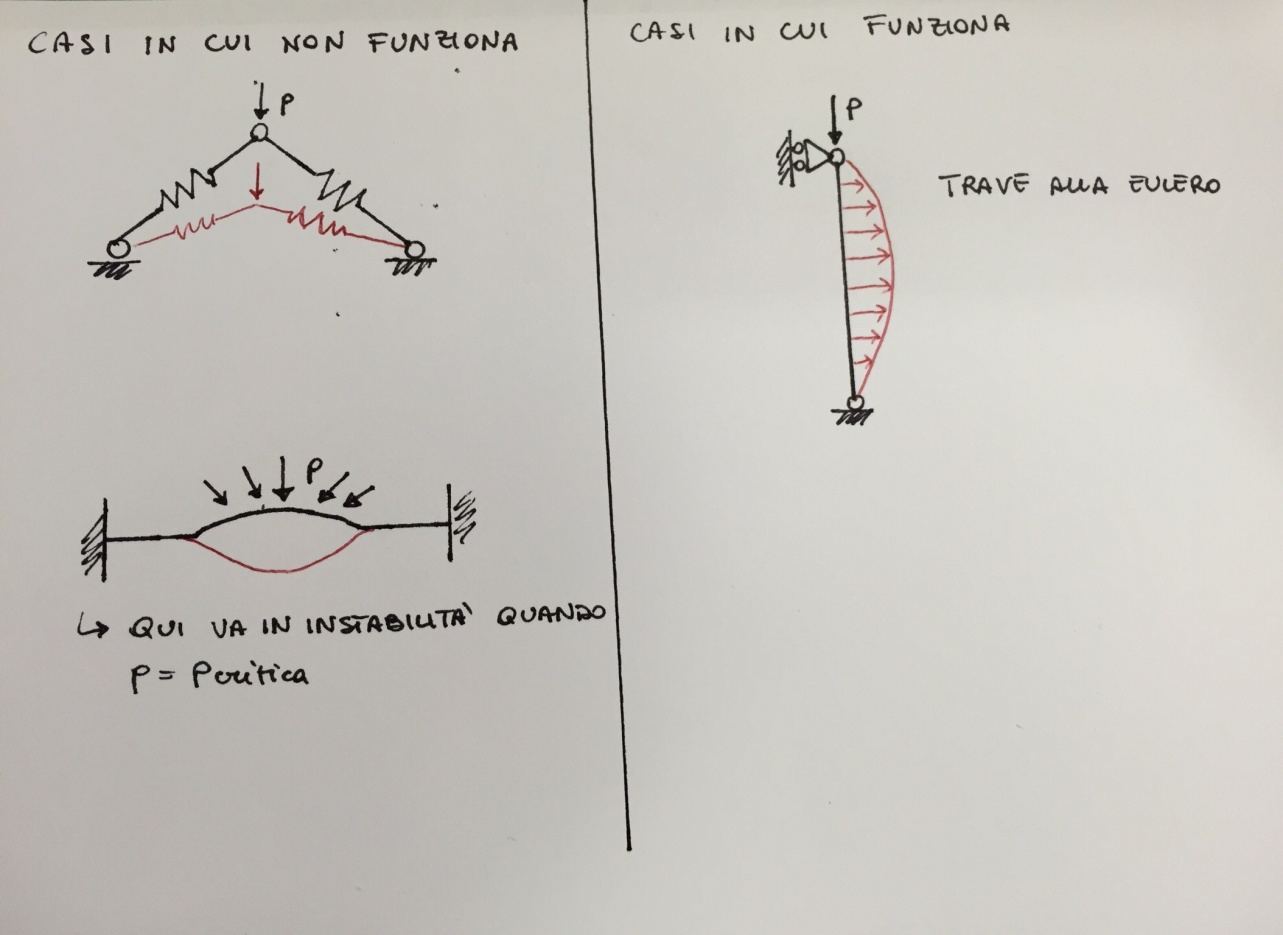 CASI IN CUI NON FUNZIONA
P
P
↳ QUI VA IN INSTABILITA' QUANDO
P = Pcritica
CASI IN CUI FUNZIONA
P
TRAVE ALLA EULERO